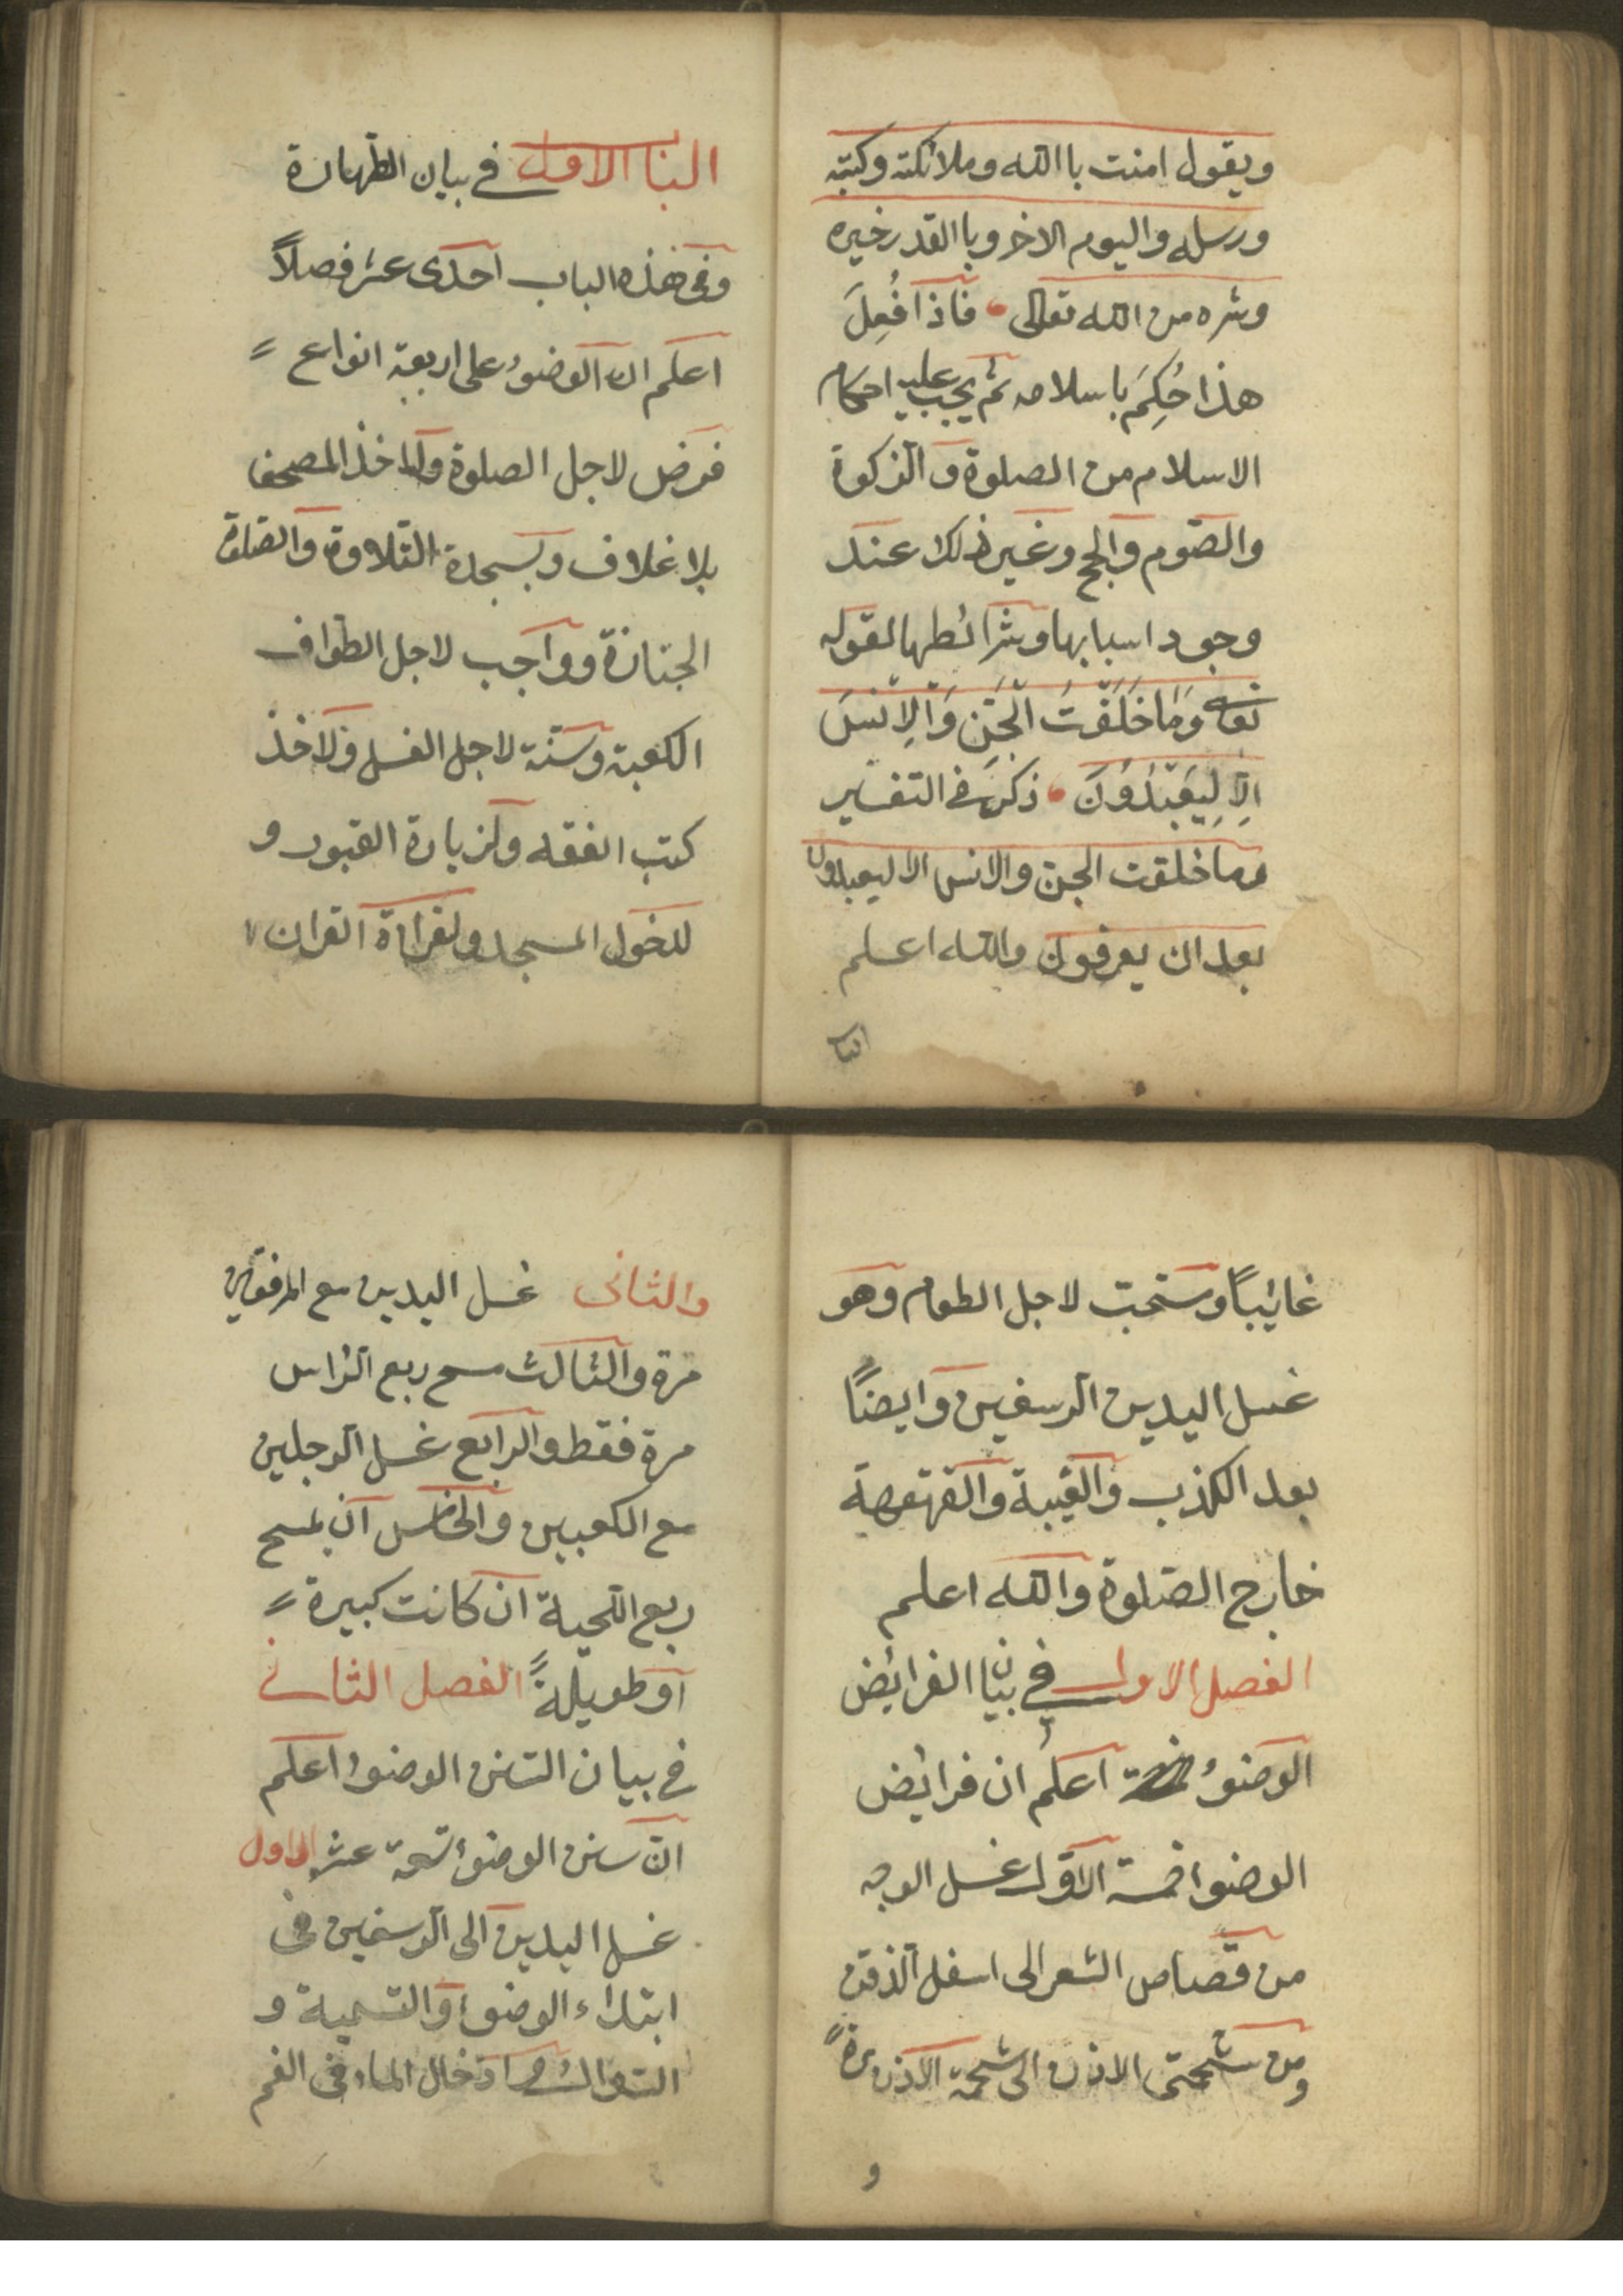 ويقول امنت باالله وملائكته وكتبه
ورسله واليوم الاخر وباالقدر خيره
وشره من الله تعالى فاذا فُعِلَ
هذا حُكِمَ باسلامه ثم يجب عليه احكام
الاسلام من الصلوة والزكوة
والصّوم والحج وغير ذلك عند
وجود اسبابها وشرائطها لقوله
تعالى وَمَا خَلَقْتُ الْجِنَّ وَالْاِنْسَ
اِلَّا لِيَعْبُدُونَ ذكر في التفسير
وما خلقت الجن والانس الا ليعبدون
بعد ان يعرفون والله اعلم
البنا
البنا الاول في بيان الطهارة
وفي هذه الباب احدى عشر فصلاً
اعلم ان الوضوء على اربعة انواع
فرض لاجل الصلوة ولاخذ المصحف
بلا غلاف وبسجدة التلاوة والصلوة
الجنازة وواجب لاجل الطواف
الكعبة وسنة لاجل الغسل ولاخذ
كتب الفقه ولزيارة القبور و
لدخول المسجد ولقراءة القران
غائيباً ومستحبّ لاجل الطعام وهو
غسل اليدين الرسغين وايضاً
بعد الكذب والغيبة والقهقهة
خارج الصّلوة والله اعلم
الفصل الاول في بيان الفرايض
الوضوء اعلم ان فرايض
الوضوا خمسة الاوّل غسل الوجه
من قصاص الشعر الى اسفل الذقن
ومن شحمتى الاذن الى شحمة الاذن مرةً
و
والثانى غسل اليدين مع المرفقين
مرة والثالث مسح ربع الرّاس
مرة فقط والرابع غسل الرجلين
مع الكعبين والخامس ان يمسح
ربع اللّحية ان كانت كبيرة
او طويلةً الفصل الثانى
في بيان السنن الوضوء اعلم
انّ سنن الوضوء تسعة عشر الاول
غسل اليدين الى الرسغين في
ابتداء الوضوا والتسمية و
السواك و ادخال الماء في الفم